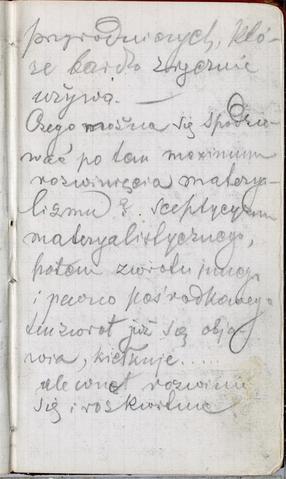 przyrodniczych, któ-
re bardzo zręcznie
używa. —
Czego można się spodzie
wać po tem maximum
rozwinięcia matery-
lizmu & sceptycyzm
materyalistycznego,
potem zwrotu
i pewno pośrodkowego
ten zwrot już się obja
wia, kiełkuje.....
wewnąt rozwinie
się i rozkwitnie